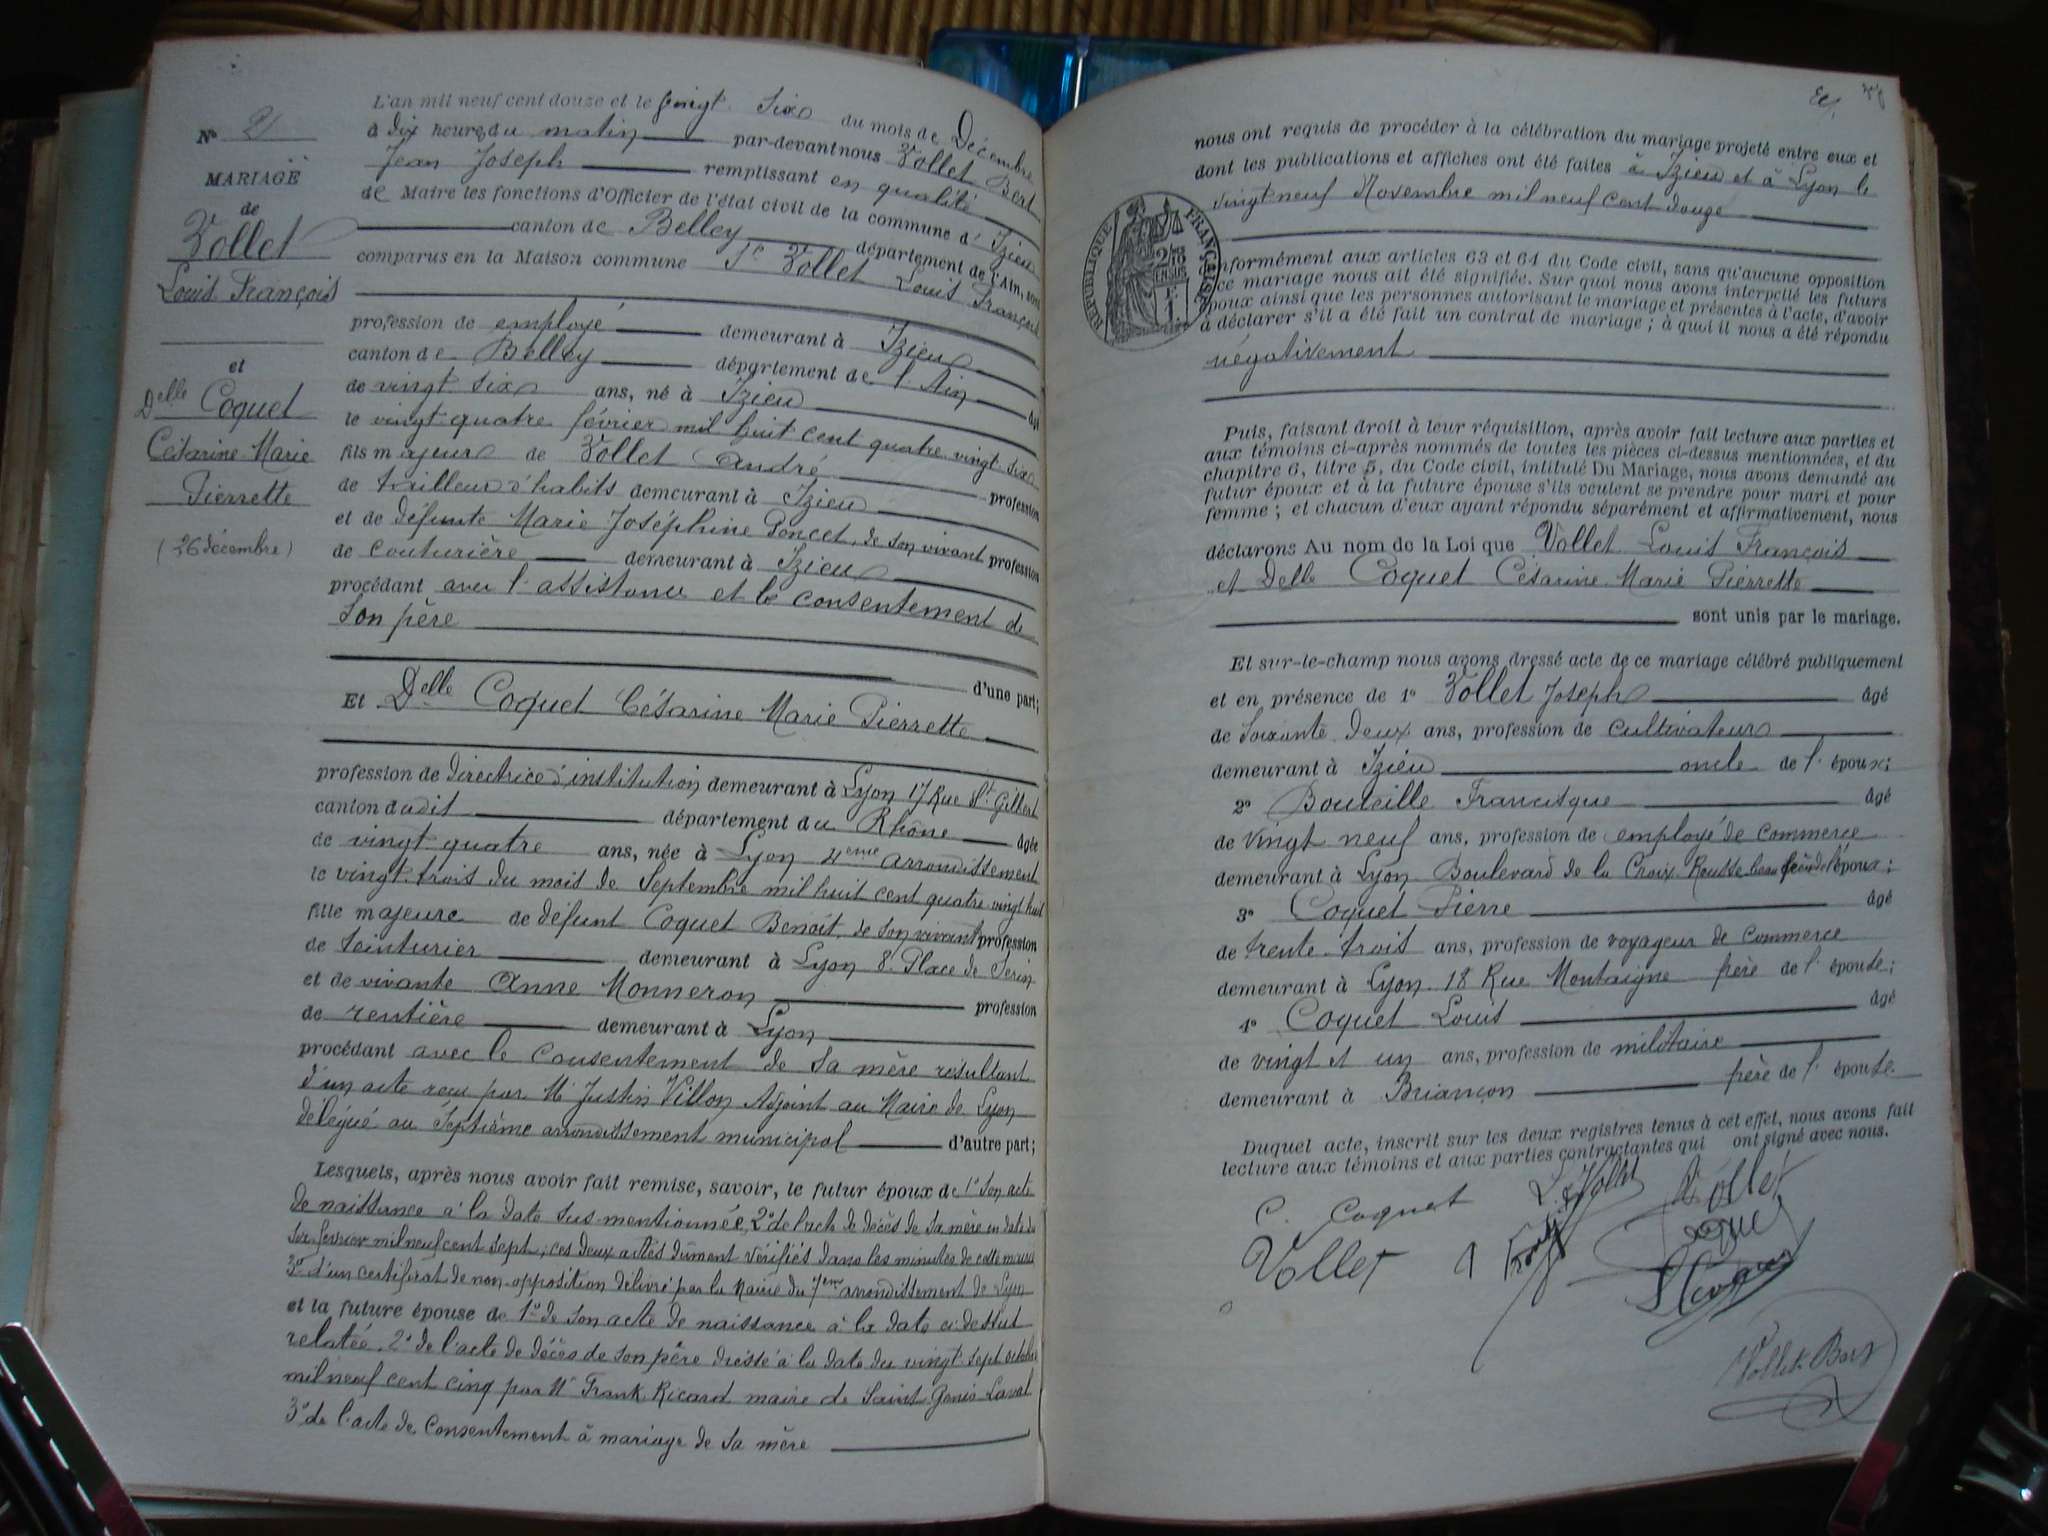 L'an mil neuf cent douze et le vingt six du mois de Décembre
N° 2 à dix heures du matin par-devant nous Vollet Bert
MARIAGE Jean Joseph remplissant en qualité
de de Maire les fonctions d'Officier de l'état civil de la commune d'Izieu
Vollet canton de Belley département de l'Ain, sont
Louis François comparus en la Maison commune Sr Vollet Louis François
profession de employé demeurant à Izieu
et canton de Belley département de l'Ain âgé
Delle Coquet de vingt six ans, né à Izieu
Césarine Marie le vingt quatre février mil huit cent quatre vingt six
Pierrette fils majeur de Vollet André profession
(26 décembre) de tailleur d'habits demeurant à Izieu
et de défunte Marie Joséphine Poncet, de son vivant profession
de couturière demeurant à Izieu
procédant avec l'assistance et le consentement de
son père
d'une part;
Et Delle Coquet Césarine Marie Pierrette
profession de directrice d'institution demeurant à Lyon 17 Rue St Gilbert
canton dudit département du Rhône âgée
de vingt quatre ans, née à Lyon 4eme arrondissement
le vingt trois du mois de Septembre mil huit cent quatre vingt huit
fille majeure de défunt Coquet Benoit, de son vivant profession
de teinturier demeurant à Lyon 8 Place de Serin
et de vivante Anne Monneron profession
de rentière demeurant à Lyon
procédant avec le consentement de sa mère résultant
d'un acte reçu par Mr Justin Villon Adjoint au Maire de Lyon
délégué au Septième arrondissement municipal d'autre part;
Lesquels, après nous avoir fait remise, savoir, le futur époux de 1° son acte
de naissance à la date sus-mentionnée, 2° de l'acte de décès de sa mère en date du
six février mil neuf cent sept; ces deux actes dûment vérifiés dans les minutes de cette mairie
3° d'un certificat de non-opposition délivré par la Mairie du 7eme arrondissement de Lyon
et la future épouse de 1° de son acte de naissance à la date ci-dessus
relatée. 2° de l'acte de décès de son père dressé à la date du vingt sept octobre
mil neuf cent cinq par Mr Frank Ricard maire de Saint Genis Laval
3° de l'acte de consentement à mariage de sa mère
nous ont requis de procéder à la célébration du mariage projeté entre eux et
dont les publications et affiches ont été faites à Izieu et à Lyon le
vingt neuf Novembre mil neuf cent douze
RÉPUBLIQUE FRANÇAISE
nformément aux articles 63 et 64 du Code civil, sans qu'aucune opposition
ce mariage nous ait été signifiée. Sur quoi nous avons interpellé les futurs
poux ainsi que les personnes autorisant le mariage et présentes à l'acte, d'avoir
à déclarer s'il a été fait un contrat de mariage; à quoi il nous a été répondu
négativement
Puis, faisant droit à leur réquisition, après avoir fait lecture aux parties et
aux témoins ci-après nommés de toutes les pièces ci-dessus mentionnées, et du
chapitre 6, titre 5, du Code civil, intitulé Du Mariage, nous avons demandé au
futur époux et à la future épouse s'ils veulent se prendre pour mari et pour
femme; et chacun d'eux ayant répondu séparément et affirmativement, nous
déclarons Au nom de la Loi que Vollet Louis François
et Delle Coquet Césarine Marie Pierrette
sont unis par le mariage.
Et sur-le-champ nous avons dressé acte de ce mariage célébré publiquement
et en présence de 1° Vollet Joseph âgé
de soixante deux ans, profession de cultivateur
demeurant à Izieu oncle de l'époux;
2° Bouteille Francisque âgé
de vingt neuf ans, profession de employé de commerce
demeurant à Lyon Boulevard de la Croix Rousse beau frère de l'époux;
3° Coquet Pierre âgé
de trente trois ans, profession de voyageur de commerce
demeurant à Lyon 18 Rue Montaigne frère de l'épouse;
4° Coquet Louis âgé
de vingt et un ans, profession de militaire
demeurant à Briançon frère de l'épouse
Duquel acte, inscrit sur les deux registres tenus à cet effet, nous avons fait
lecture aux témoins et aux parties contractantes qui ont signé avec nous.
C. Coquet L. Vollet Vollet
Vollet Coquet
L Coquet
Vollet-Bert